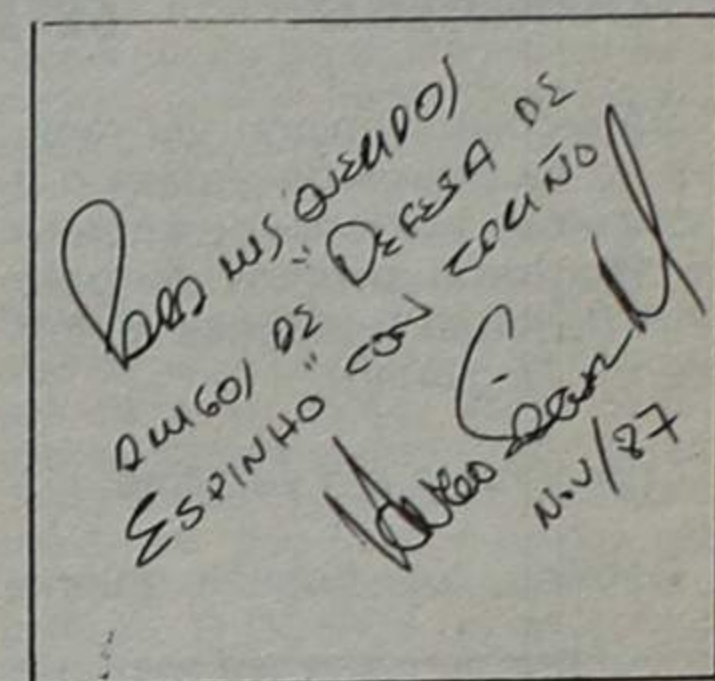 Para mis queridos
amigos de "DEFESA DE
ESPINHO" con cariño
Nov/87